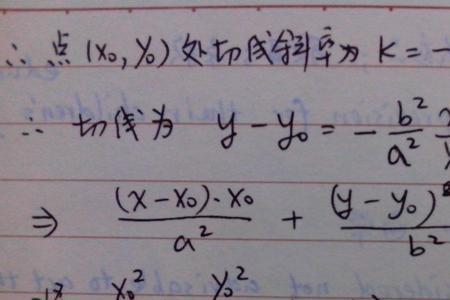 ∴ 点 (x₀, y₀) 处切线斜率为 K = -
∴ 切线为 y - y₀ = - b²/a²
⇒ (x - x₀)·x₀/a² + (y - y₀)/b²
x₀² y₀²